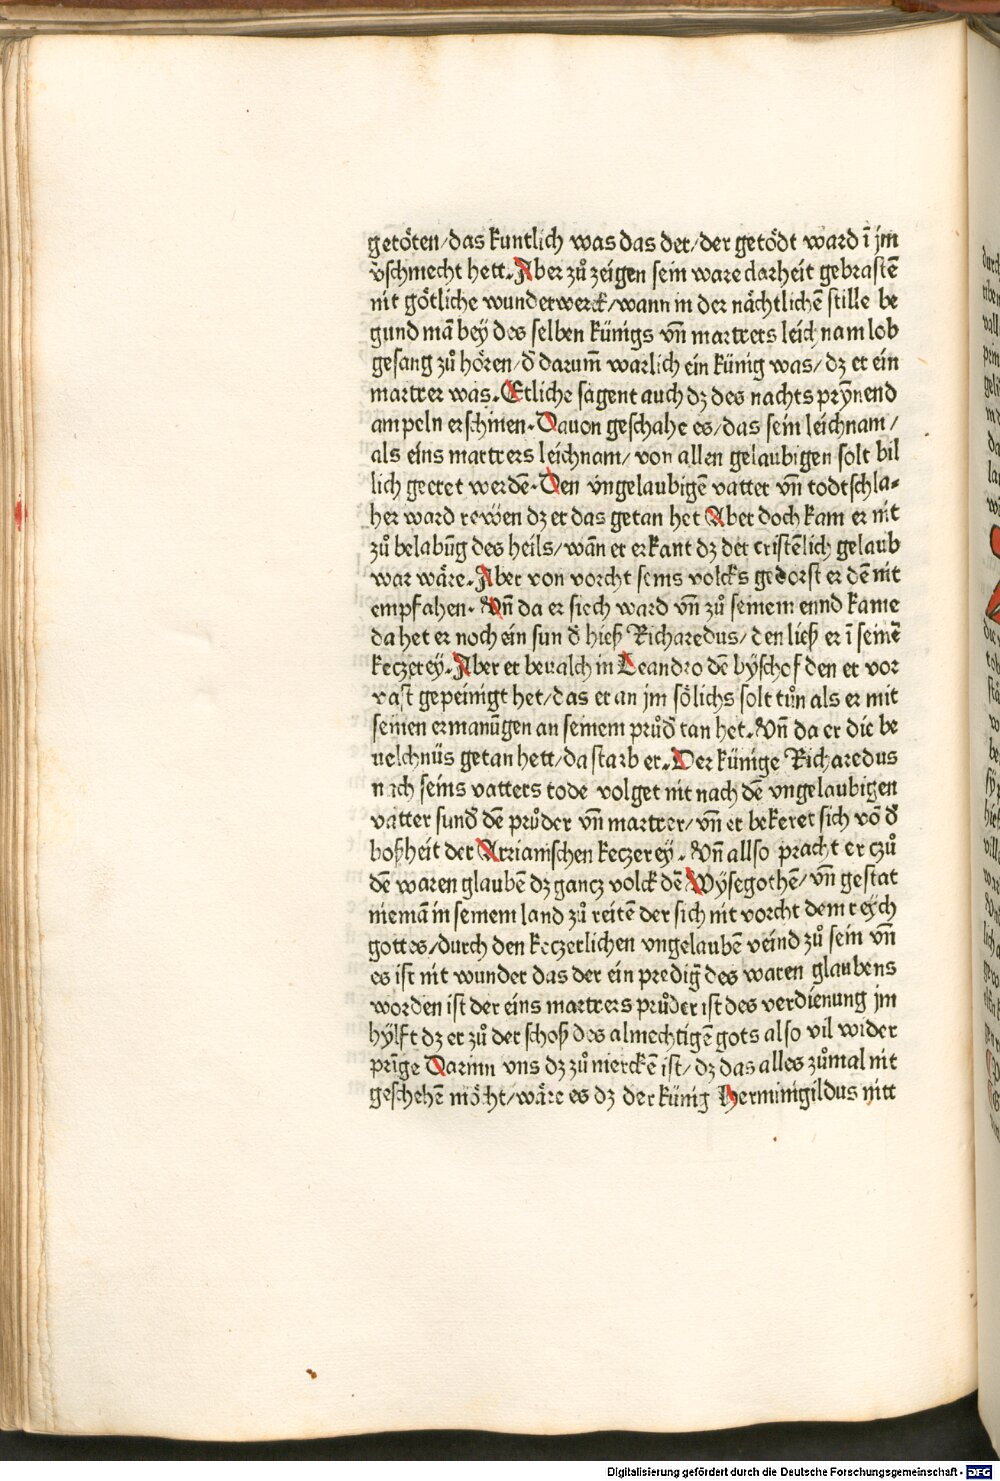 getöten/das kuntlich was das der/der getödt ward ī jm
v̄schmecht hett. Aber zů zeigen sein ware clarheit gebrastē
nit götliche wunderwerck/wann in der nächtlichē stille be
gund mā bey des selben künigs vn̄ martrers leichnam lob
gesang zů hören/d̄ darum̄ warlich ein künig was/dz er ein
martrer was. Etliche sagent auch dz des nachts prỹnend
ampeln erschinen. Dauon geschahe es/das sein leichnam/
als eins martrers leichnam/von allen gelaubigen solt bil
lich geeret werdē. Den vngelaubigē vatter vn̄ todtschla-
her ward rewen dz er das getan het Aber doch kam er nit
zů belabūg des heils/wān er erkant dz der cristēlich gelaub
war wäre. Aber von vorcht seins volcks gedorst er dē nit
empfahen. Vn̄ da er siech ward vn̄ zů seinem ennd kame
da het er noch ein sun d̄ hieß Richaredus/den ließ er ī seinē
keczerey. Aber er beualch in Leandro dē byschof den er vor
vast gepeinigt het/das er an jm sölichs solt tůn als er mit
seinen ermanūgen an seinem průd̄ tan het. Vn̄ da er die be
uelchnüs getan hett/da starb er. Der künige Richaredus
nach seins vatters tode volget nit nach dē vngelaubigen
vatter sund̄ dē průder vn̄ martrer/vn̄ er bekeret sich vō d̄
boßheit der Arrianischen keczerey. Vn̄ allso pracht er czů
dē waren glaubē dz gancz volck dē Wysegothē/vn̄ gestat
niemā in seinem land zů reitē der sich nit vorcht dem reych
gottes/durch den keczerlichen vngelaubē veind zů sein vn̄
es ist nit wunder das der ein prediḡ des waren glaubens
worden ist der eins martrers průder ist des verdienung jm
hylft dz er zů der schoß des almechtigē gots also vil wider
prīge Darinn vns dz zů mercken ist/dz das alles zůmal nit
geschehē möcht/wäre es dz der künig Herminigildus nitt
Digitalisierung gefördert durch die Deutsche Forschungsgemeinschaft - DFG